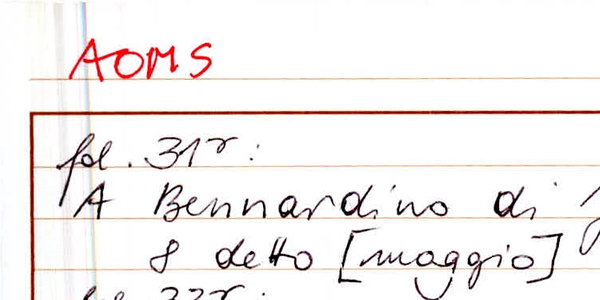 AOMS
fol. 31r:
A Bennardino di
8 detto [maggio]